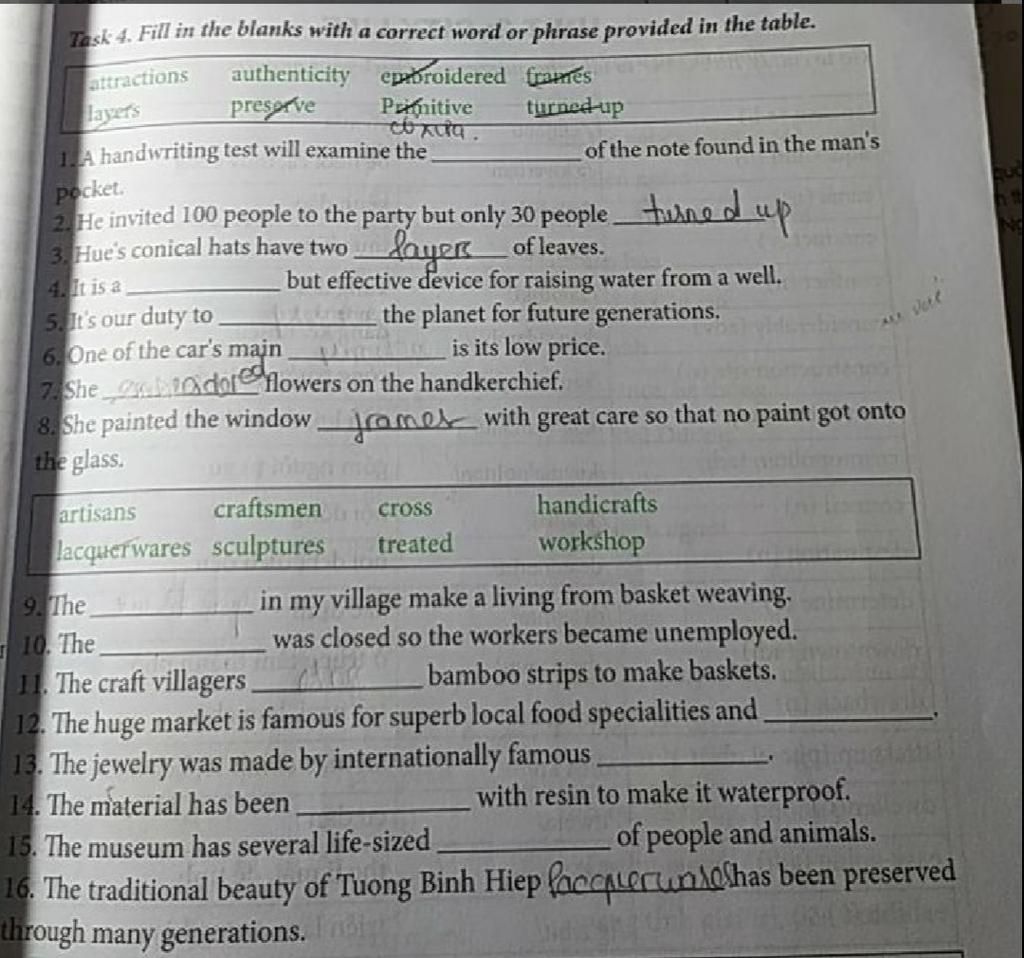 Task 4. Fill in the blanks with a correct word or phrase provided in the table.
attractions authenticity embroidered frames
layers preserve Primitive turned up
1. A handwriting test will examine the ____________ of the note found in the man's
pocket.
2. He invited 100 people to the party but only 30 people turned up
3. Hue's conical hats have two layers of leaves.
4. It is a ____________ but effective device for raising water from a well.
5. It's our duty to ____________ the planet for future generations.
6. One of the car's main ____________ is its low price.
7. She flowers on the handkerchief.
8. She painted the window frames with great care so that no paint got onto
the glass.
artisans craftsmen cross handicrafts
lacquerwares sculptures treated workshop
9. The ____________ in my village make a living from basket weaving.
10. The ____________ was closed so the workers became unemployed.
11. The craft villagers ____________ bamboo strips to make baskets.
12. The huge market is famous for superb local food specialities and ____________.
13. The jewelry was made by internationally famous ____________.
14. The material has been ____________ with resin to make it waterproof.
15. The museum has several life-sized ____________ of people and animals.
16. The traditional beauty of Tuong Binh Hiep has been preserved
through many generations.